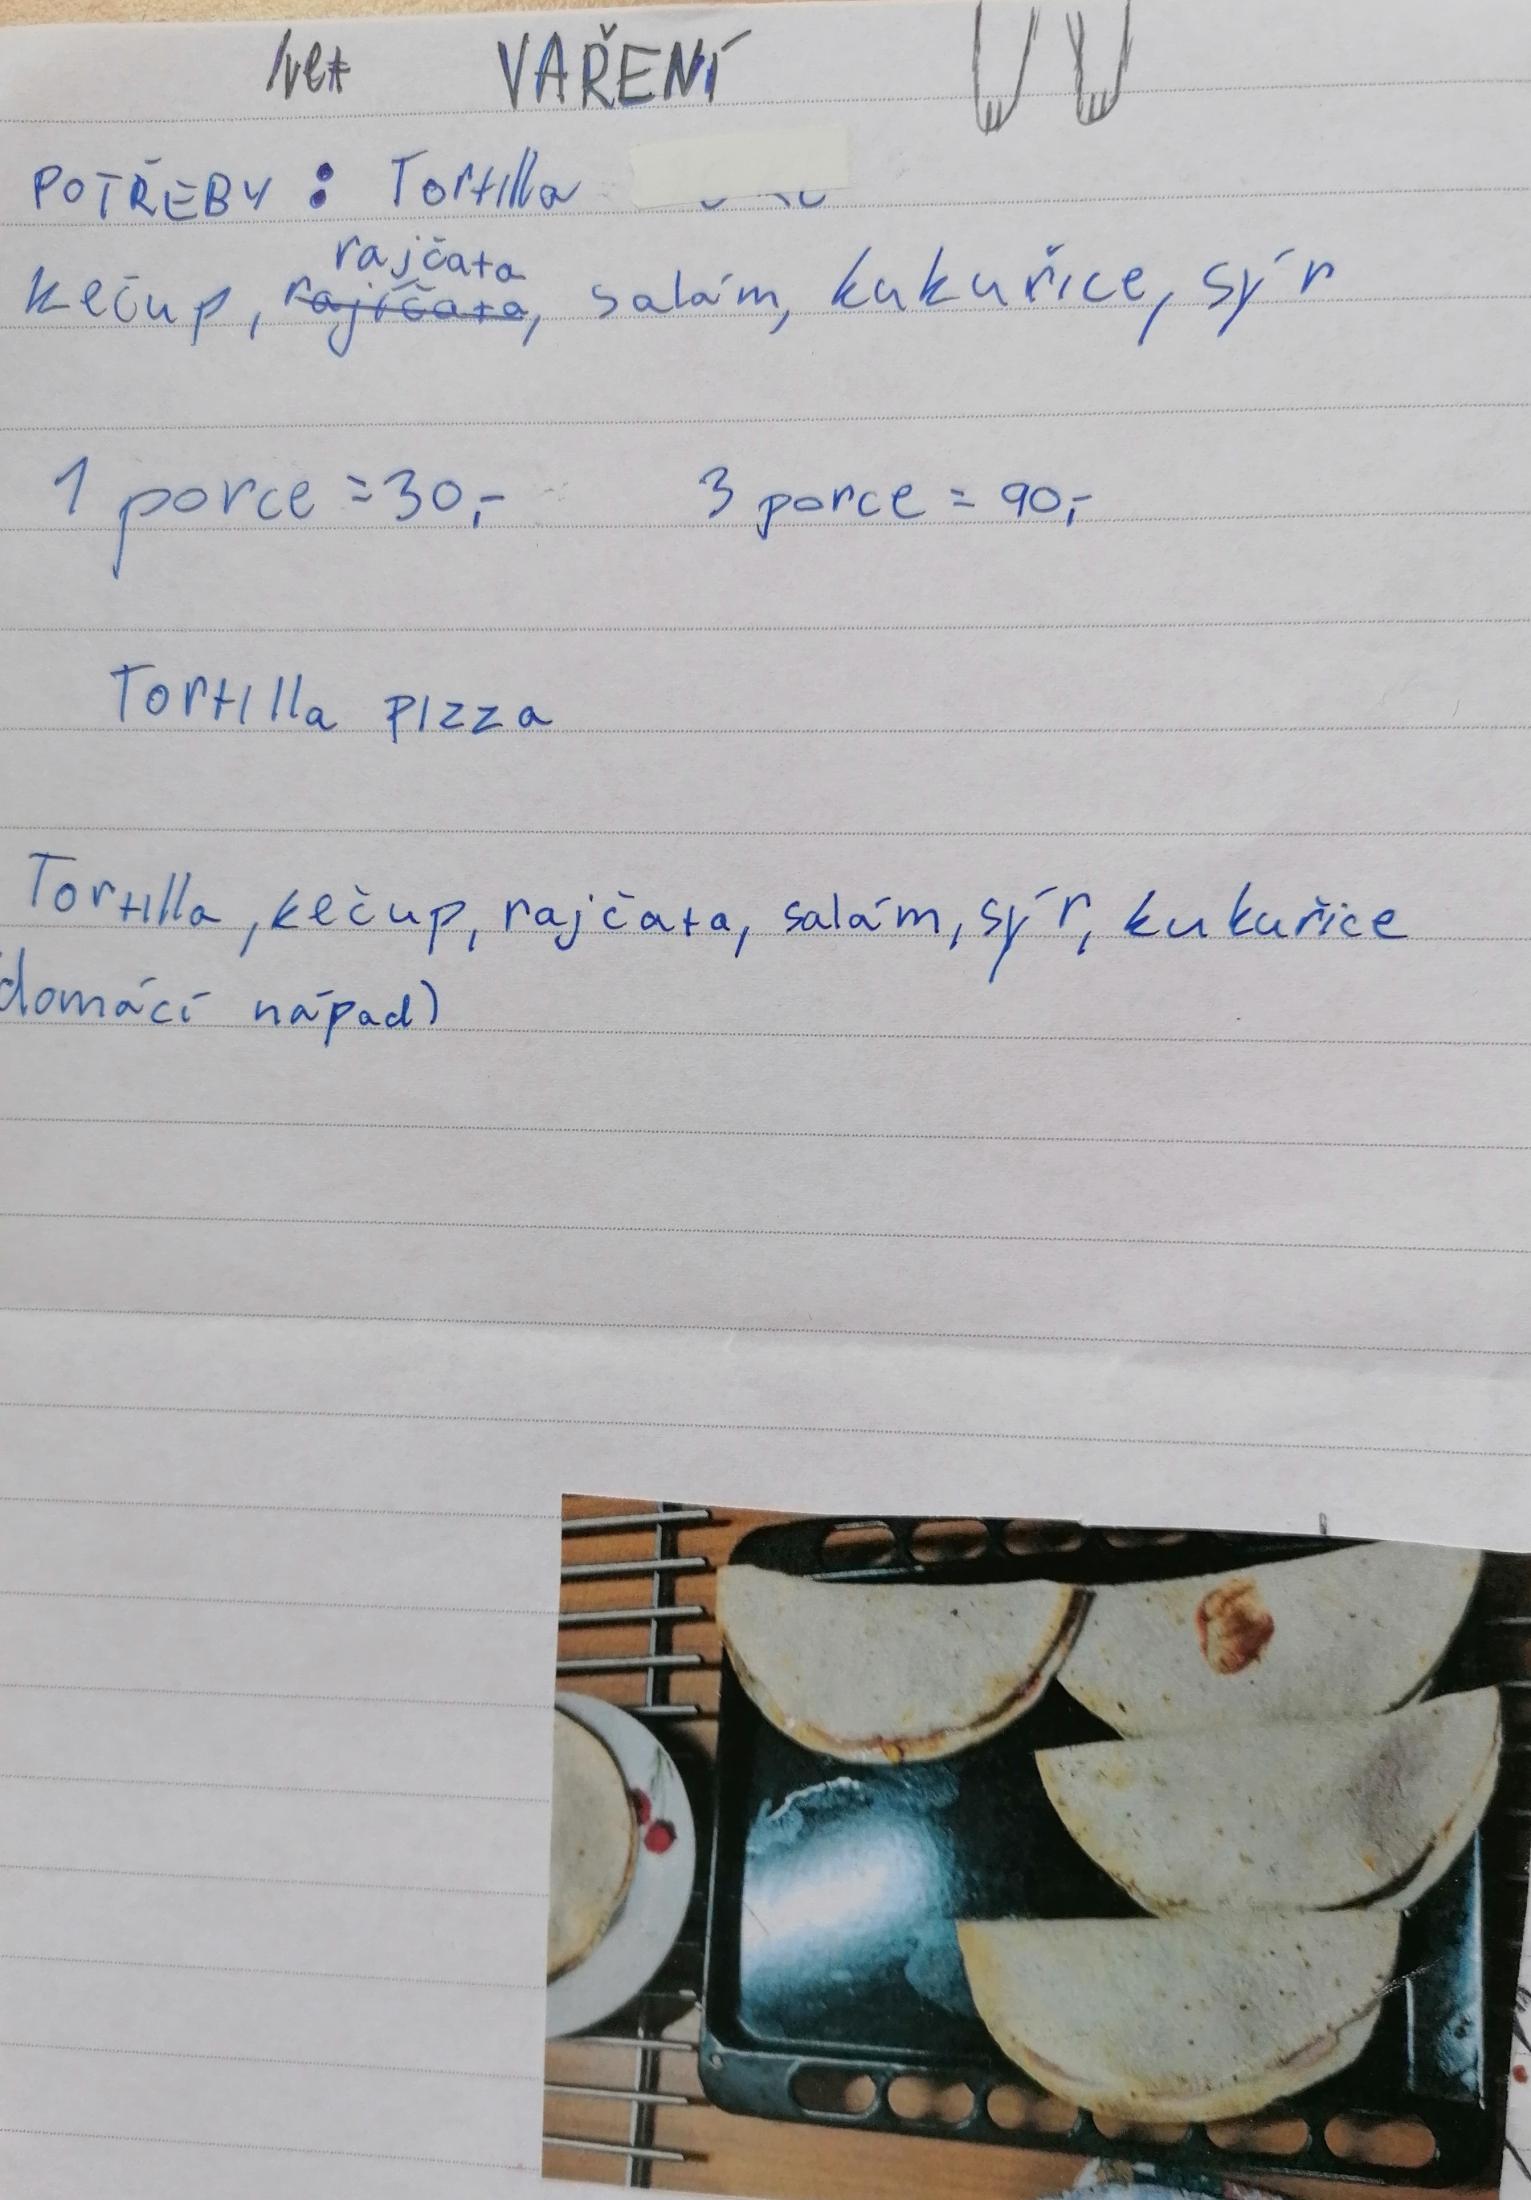 VAŘENÍ
POTŘEBY: Tortilla
rajčata
kečup, rajčata, salám, kukuřice, sýr
1 porce = 30,- 3 porce = 90,-
Tortilla pizza
Tortilla, kečup, rajčata, salám, sýr, kukuřice
domácí nápad)